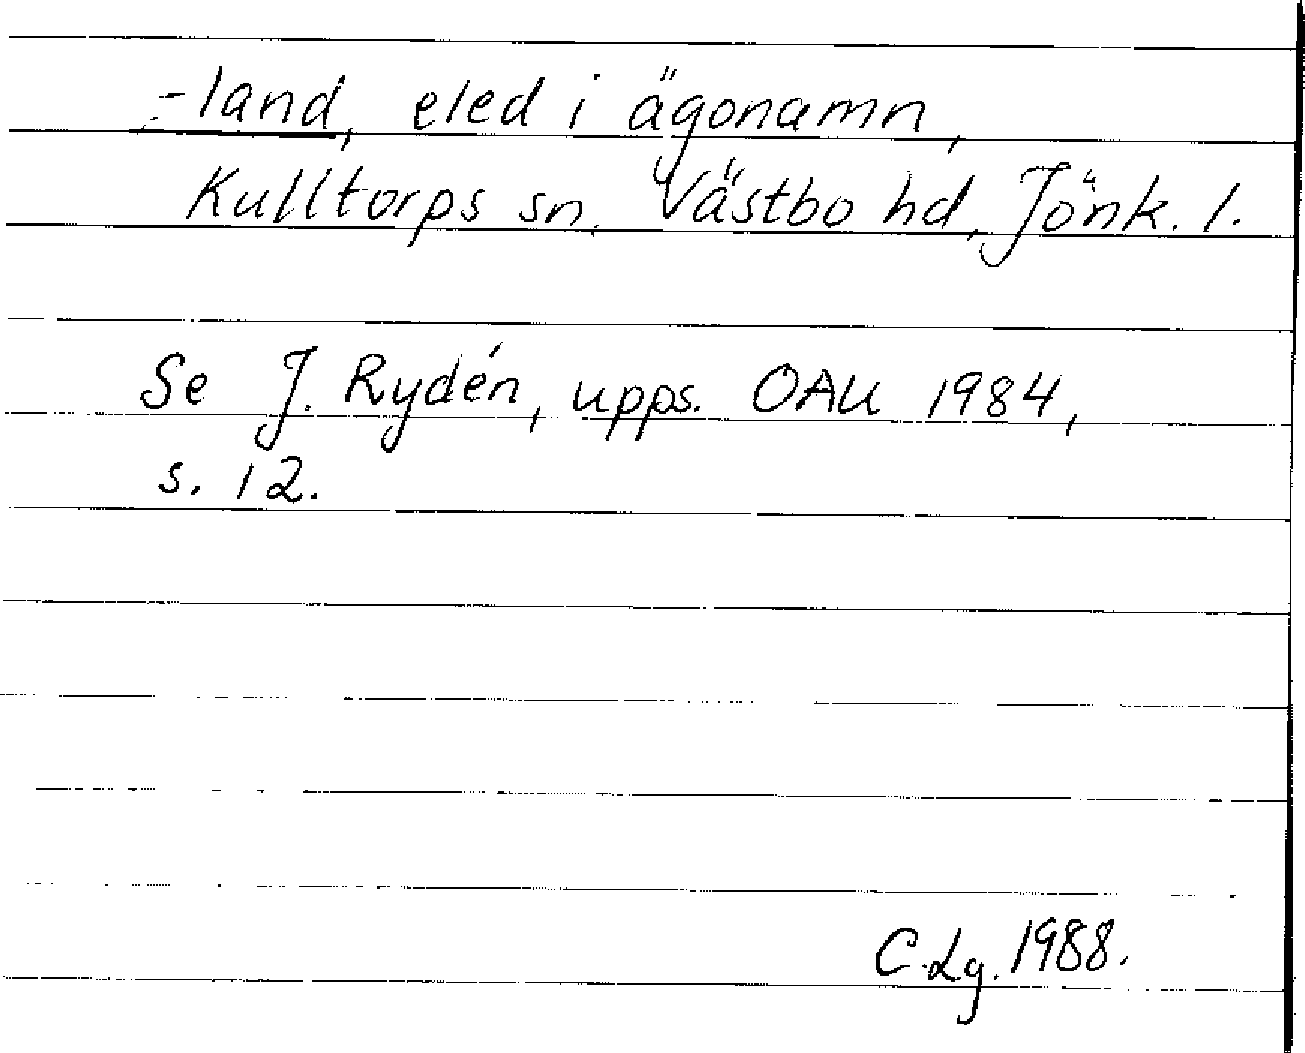 -land, eled i ägonamn,
Kulltorps sn, Västbo hd, Jönk. l.
Se J. Rydén, upps. OAU 1984,
s. 12.
C.Lg. 1988.